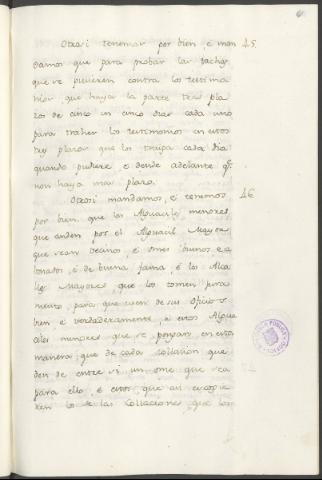 Otrosi tenemos por bien e man 45
damos que para probar las tachas
que se pusieren contra los testimo
nios que haya la parte tres pla
zos de cinco en cinco dias cada uno
para traher los testimonios en estos
tres plazos que los traiga cada dia
quando pudiere e dende adelante q.e
non haya mas plazo.
Otrosi mandamos, e tenemos 46
por bien, que los Alguaciles menores
que anden por el Alguacil Mayor
que sean vecinos, e omes buenos e a
bonados, e de buena fama, e los Alca
les Mayores, que los tomen jura
mento, para que usen de sus oficios
bien e verdaderamente, e estos Algua
ciles menores que se pongan en esta
manera, que de cada collacion que
den de entre si un ome que sea
para ello, e estos, que asi escogie
ren los de las Collaciones, que los